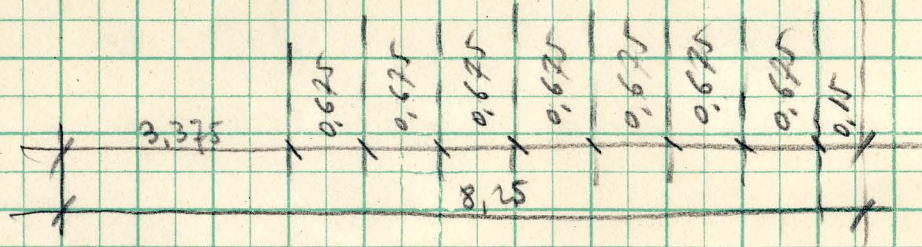 3,375 0,675 0,675 0,675 0,675 0,675 0,675 0,675 0,15
8,25